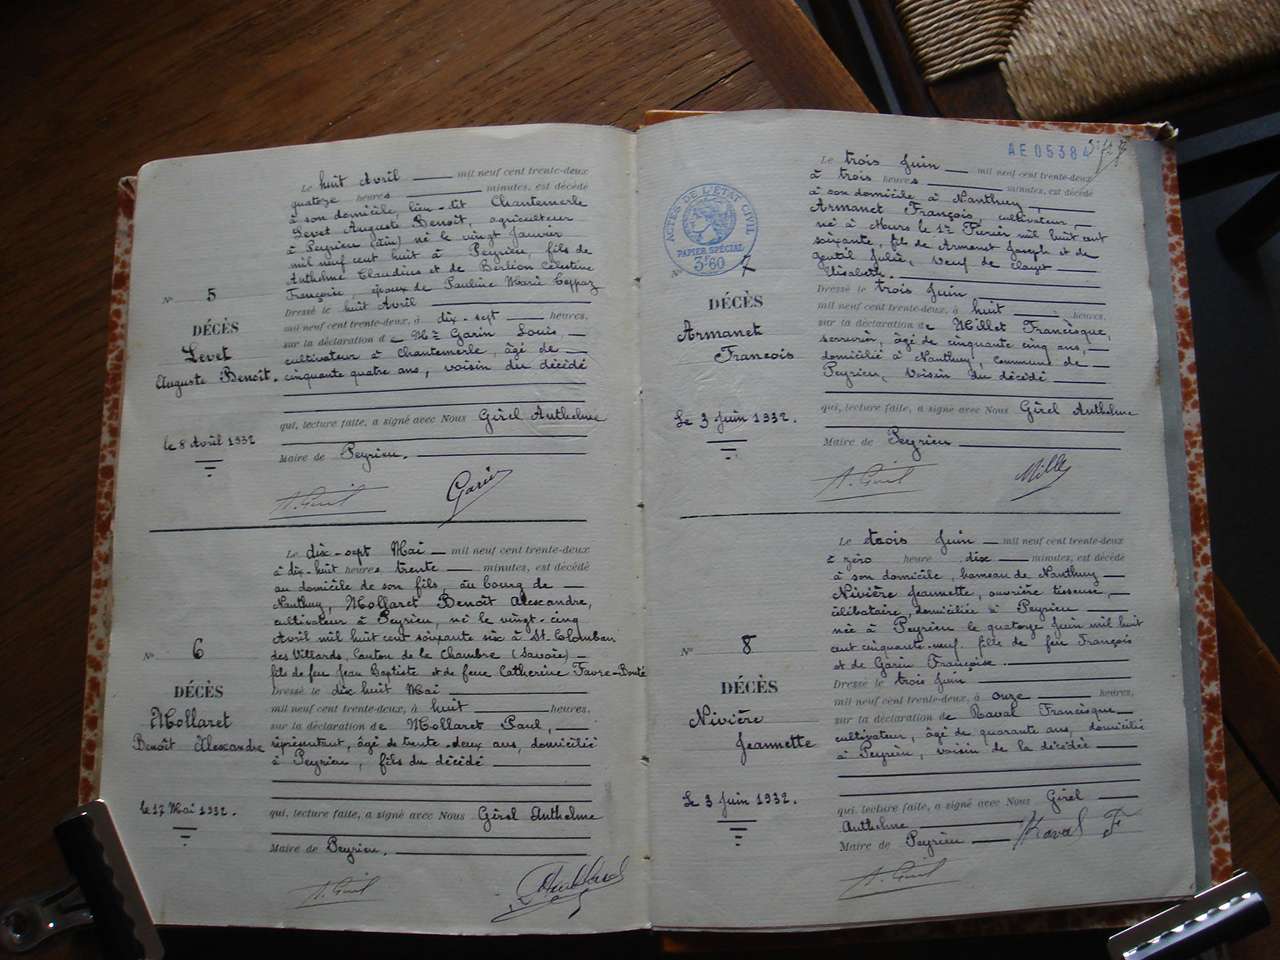 Le huit Avril mil neuf cent trente-deux
quatoze heures minutes, est décédé
à son domicile, lieu-dit Chantemerle
Levet Auguste Benoît, agriculteur
à Peyrieu (Ain) né le vingt Janvier
mil neuf cent huit à Peyrieu, fils de
Anthelme Claudius et de Berlion Célestine
Françoise, époux de Pauline Marie
Dressé le huit Avril
mil neuf cent trente-deux, à dix-sept heures,
sur la déclaration de Mr Garin Louis,
cultivateur à Chantemerle, âgé de
cinquante quatre ans, voisin du décédé
N° 5
DÉCÈS
Levet
Auguste Benoît.
le 8 Avril 1932
qui, lecture faite, a signé avec Nous Girel Anthelme
Maire de Peyrieu.
A. Girel Garin
Le dix-sept Mai mil neuf cent trente-deux
à dix-huit heures trente minutes, est décédé
au domicile de son fils, au bourg de
Nanthuy, Mollaret Benoît Alexandre,
cultivateur à Peyrieu, né le vingt-cinq
Avril mil huit cent soixante six à St. Colomban
des Villards, Canton de la Chambre (Savoie)
fils de feu Jean Baptiste et de feue Catherine Favre-Bonté
Dressé le dix huit Mai
mil neuf cent trente-deux, à huit heures,
sur la déclaration de Mollaret Paul,
représentant, âgé de trente-deux ans, domicilié
à Peyrieu, fils du décédé
N° 6
DÉCÈS
Mollaret
Benoît Alexandre
le 17 Mai 1932.
qui, lecture faite, a signé avec Nous Girel Anthelme
Maire de Peyrieu.
A. Girel
AE 0538
ACTES DE L'ÉTAT CIVIL
PAPIER SPÉCIAL
3F60
Le trois Juin mil neuf cent trente-deux
à trois heures minutes, est décédé
à son domicile à Nanthuy,
Armanet François, cultivateur,
né à Meurs le 17 Février mil huit cent
soixante, fils de Armanet Joseph et de
Gentil Julie, veuf de
Elisabeth.
Dressé le trois Juin
mil neuf cent trente-deux, à huit heures,
sur la déclaration de Millet Francisque,
serrurier, âgé de cinquante cinq ans,
domicilié à Nanthuy, commune de
Peyrieu, voisin du décédé
N° 7
DÉCÈS
Armanet
François
Le 3 Juin 1932.
qui, lecture faite, a signé avec Nous Girel Anthelme
Maire de Peyrieu
A. Girel Millet
Le trois Juin mil neuf cent trente-deux
à zéro heure dix minutes, est décédé
à son domicile, hameau de Nanthuy
Nivière Jeannette, ouvrière tisseuse,
célibataire, domiciliée à Peyrieu
née à Peyrieu le quatorze Juin mil huit
cent cinquante-neuf, fille de feu François
et de Garin Françoise
Dressé le trois Juin
mil neuf cent trente-deux, à onze heures,
sur la déclaration de Raval Francisque
cultivateur, âgé de quarante ans, domicilié
à Peyrieu, voisin de la décédée
N° 8
DÉCÈS
Nivière
Jeannette
Le 3 Juin 1932.
qui, lecture faite, a signé avec Nous Girel
Anthelme
Maire de Peyrieu Raval F
A. Girel